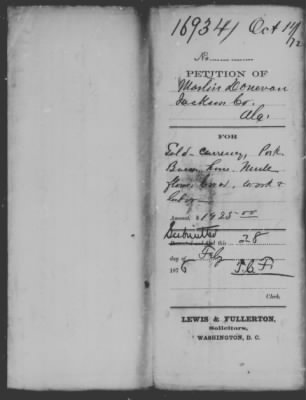 169341 Oct 14/72
No.
PETITION OF
Martin Donevan
Jackson Co.
Ala.
FOR
Gold - Currency, Pork
Bacon, Mule
flour, work &
labor
Amount, $ 1925.00
Submitted
this 28
day of Feb
187
Clerk.
LEWIS & FULLERTON,
Solicitors,
WASHINGTON, D. C.